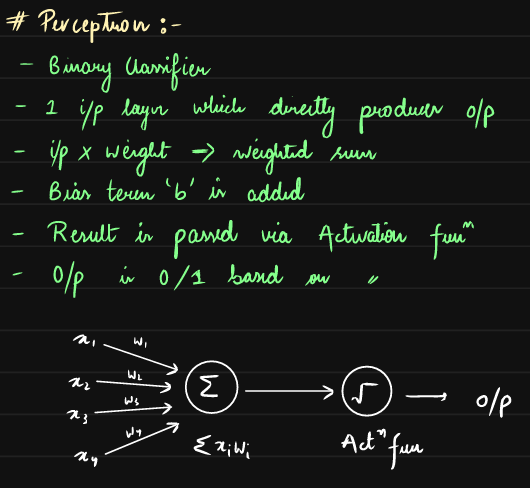 # Perceptron :-
- Binary Classifier
- 1 i/p layer which directly produces o/p
- i/p x weight → weighted sum
- Bias term 'b' is added
- Result is passed via Activation funⁿ
- O/p is 0/1 based on "
x₁ w₁
x₂ w₂
x₃ w₃
x₄ w₄
Σ
Σxᵢwᵢ
Actⁿ fun
o/p